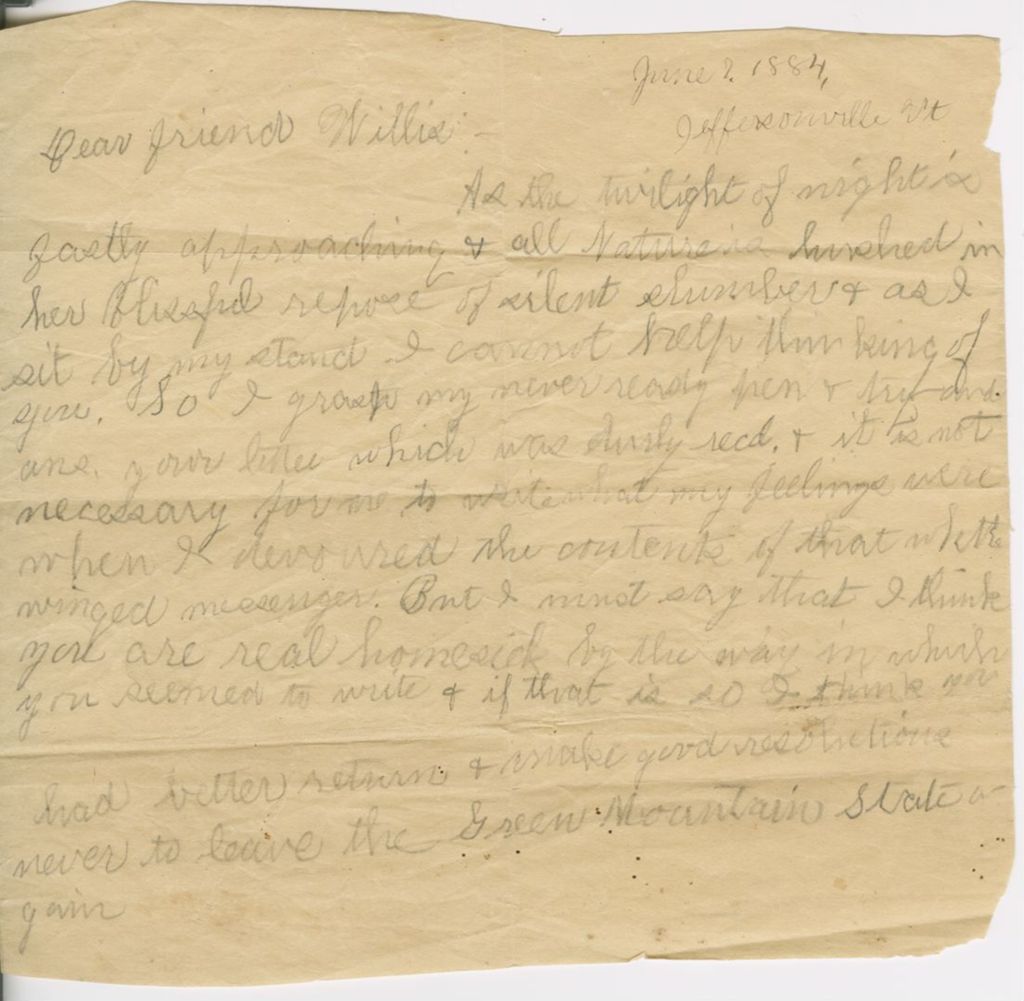 June 2. 1884,
Jeffersonville Vt
Dear friend Willis:-
As the twilight of night is
fastly approaching & all Nature is hushed in
her blissful repose of silent slumber & as I
sit by my stand I cannot help thinking of
you. So I grasp my never ready pen & try and
ans. your letter which was duly recd. & it is not
necessary for me to write what my feelings were
when I devoured the contents of that
winged messenger. But I must say that I think
you are real homesick by the way in which
you seemed to write & if that is so I think you
had better return & make good resolutions
never to leave the Green Mountain State a-
gain